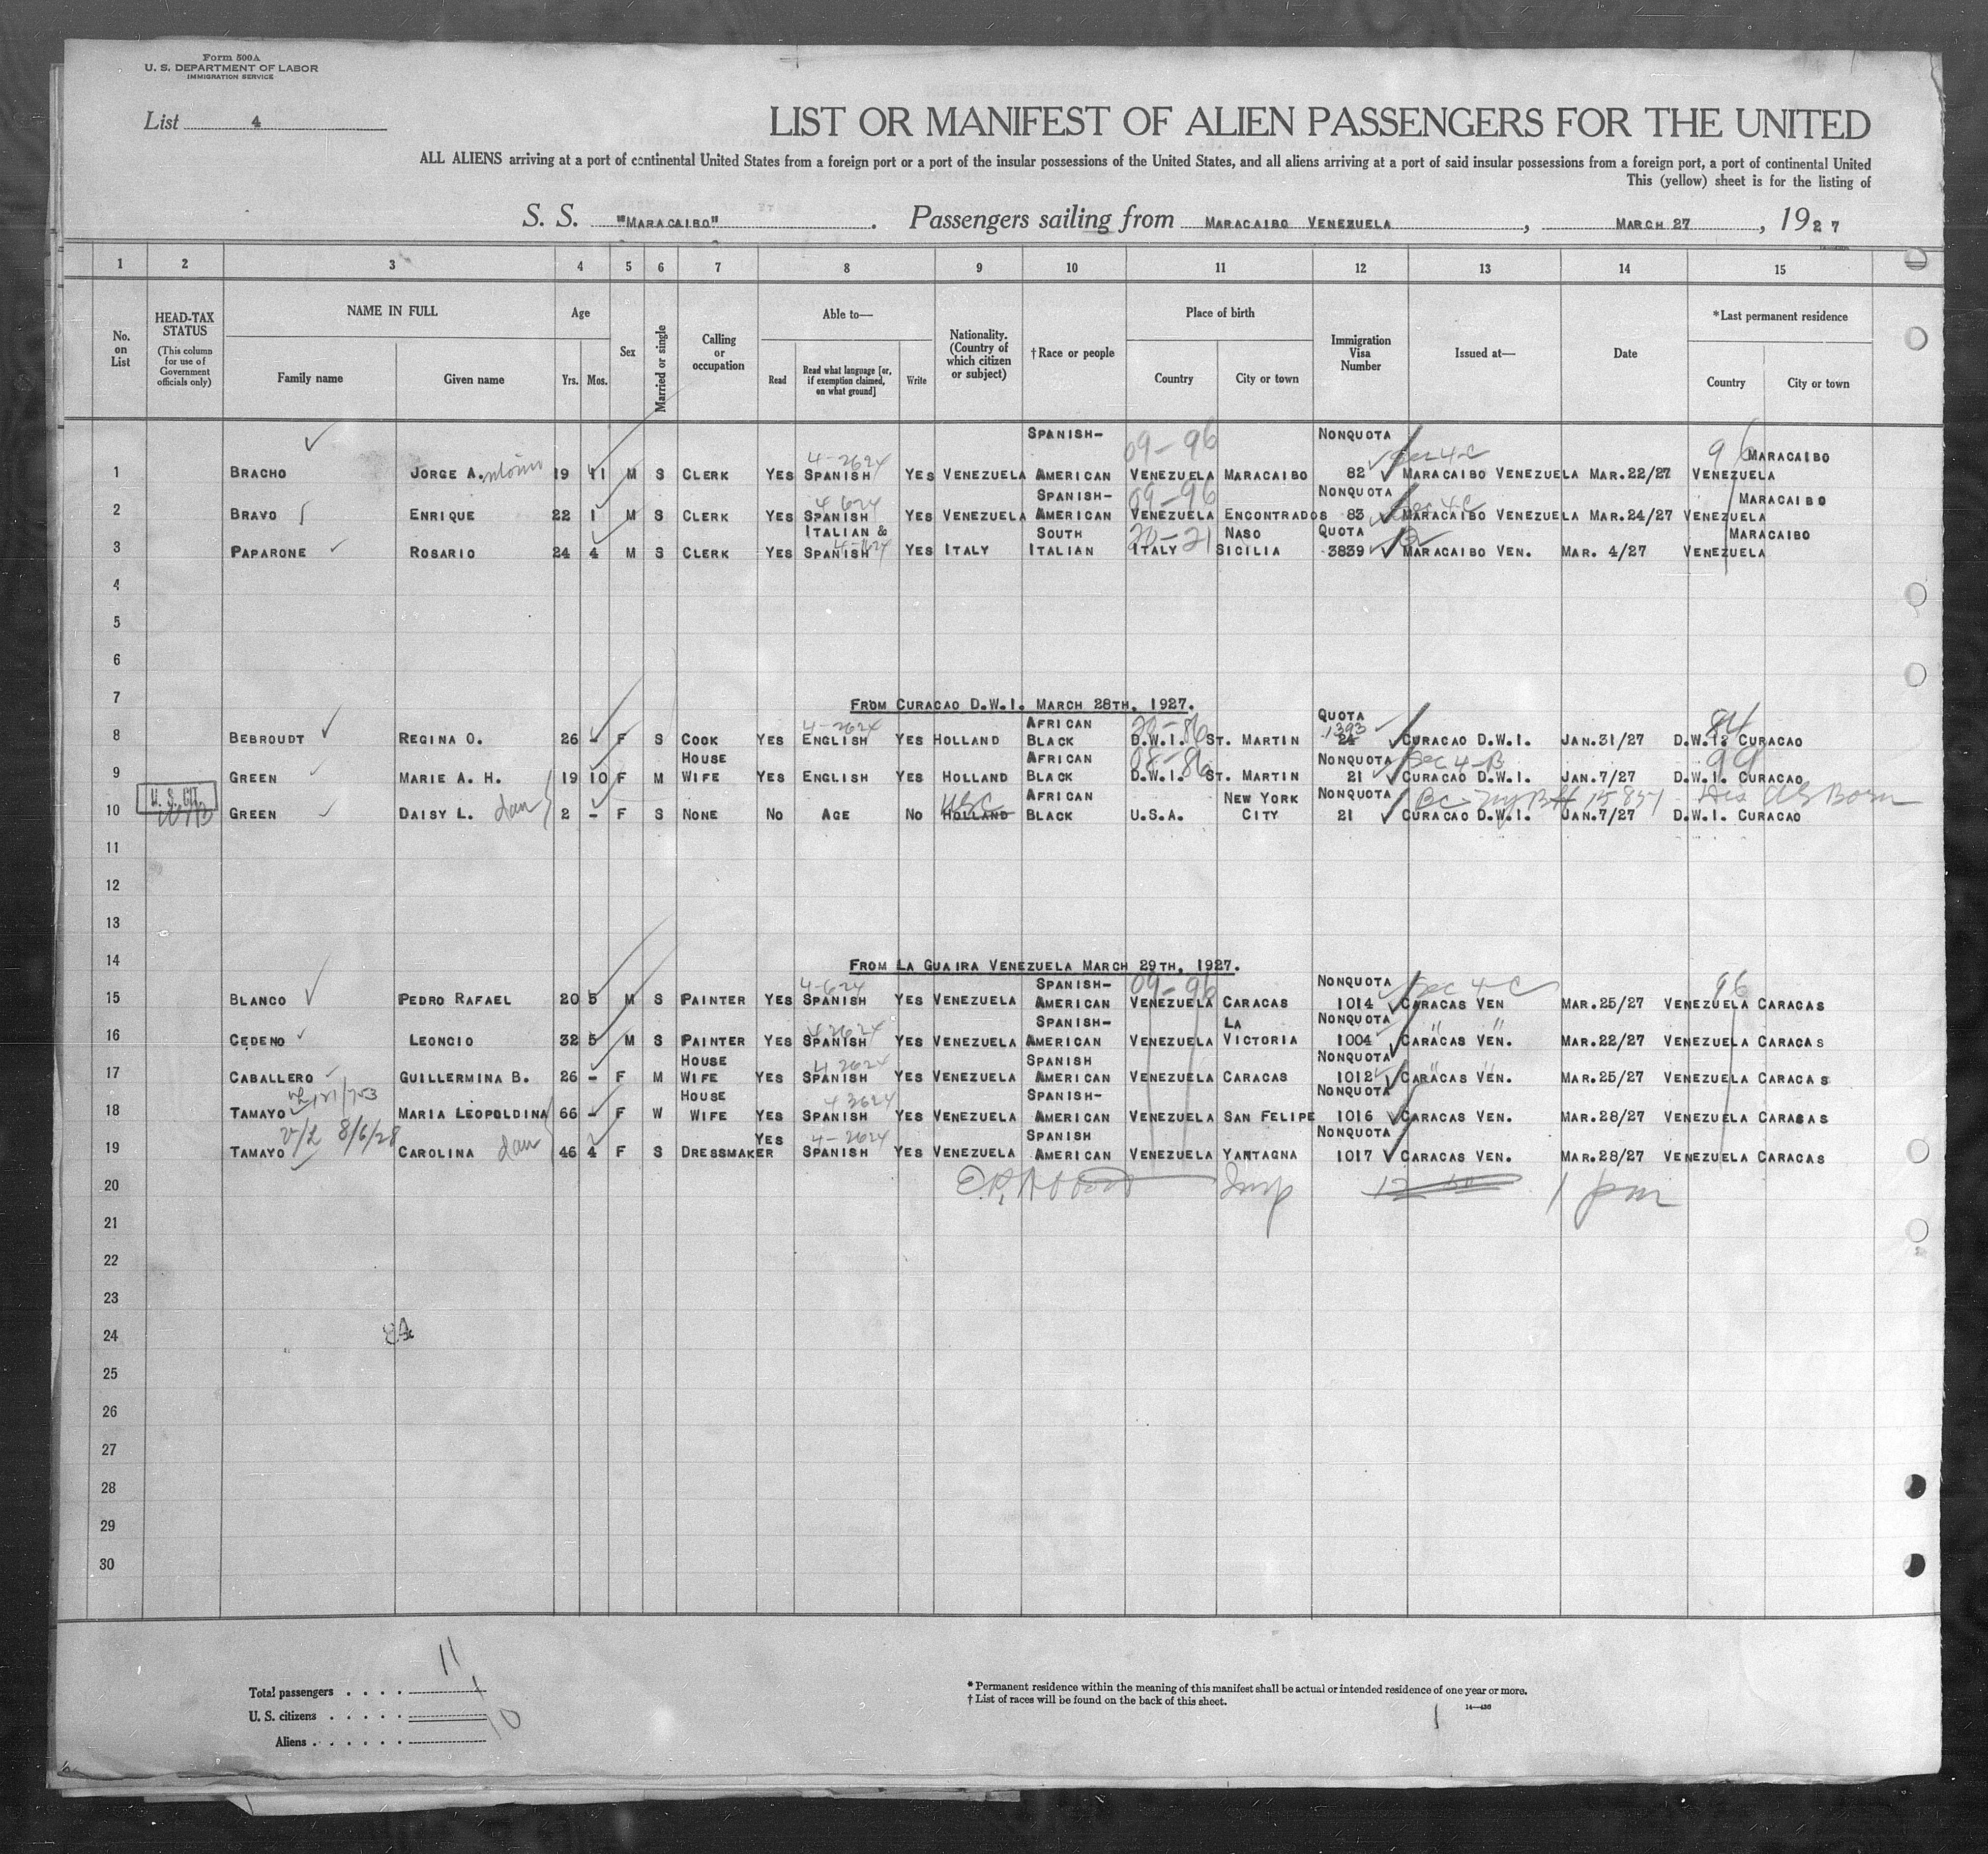 Form 500A
U. S. DEPARTMENT OF LABOR
IMMIGRATION SERVICE
List 4
LIST OR MANIFEST OF ALIEN PASSENGERS FOR THE UNITED
ALL ALIENS arriving at a port of continental United States from a foreign port or a port of the insular possessions of the United States, and all aliens arriving at a port of said insular possessions from a foreign port, a port of continental United
This (yellow) sheet is for the listing of
S. S. "MARACAIBO". Passengers sailing from MARACAIBO VENEZUELA, MARCH 27, 1927
1 2 3 4 5 6 7 8 9 10 11 12 13 14 15
No. on List
HEAD-TAX STATUS (This column for use of Government officials only)
NAME IN FULL
Family name Given name
Age
Yrs. Mos.
Sex
Married or single
Calling or occupation
Able to—
Read Read what language [or, if exemption claimed, on what ground] Write
Nationality. (Country of which citizen or subject)
†Race or people
Place of birth
Country City or town
Immigration Visa Number
Issued at—
Date
*Last permanent residence
Country City or town
SPANISH- 09-96 NONQUOTA Sec 4-C 96 MARACAIBO
4-2624
1 BRACHO JORGE A. 19 11 M S CLERK YES SPANISH YES VENEZUELA AMERICAN VENEZUELA MARACAIBO 82 MARACAIBO VENEZUELA MAR.22/27 VENEZUELA
4-624 SPANISH- 09-96 NONQUOTA Sec 4-C MARACAIBO
2 BRAVO ENRIQUE 22 1 M S CLERK YES SPANISH YES VENEZUELA AMERICAN VENEZUELA ENCONTRADOS 83 MARACAIBO VENEZUELA MAR.24/27 VENEZUELA
ITALIAN & SOUTH NASO QUOTA MARACAIBO
3 PAPARONE ROSARIO 24 4 M S CLERK YES SPANISH YES ITALY ITALIAN ITALY SICILIA 3839 MARACAIBO VEN. MAR. 4/27 VENEZUELA
4
5
6
7 FROM CURACAO D.W.I. MARCH 28TH, 1927.
4-2624 AFRICAN QUOTA 1393
8 BEBROUDT REGINA O. 26 - F S COOK YES ENGLISH YES HOLLAND BLACK D.W.I. ST. MARTIN 24 CURACAO D.W.I. JAN.31/27 D.W.I. CURACAO
HOUSE AFRICAN 08-86 NONQUOTA Sec 4-B
9 GREEN MARIE A. H. 19 10 F M WIFE YES ENGLISH YES HOLLAND BLACK D.W.I. ST. MARTIN 21 CURACAO D.W.I. JAN.7/27 D.W.I. CURACAO
U. S. CIT. USC AFRICAN NEW YORK NONQUOTA US Born
10 GREEN DAISY L. dau 2 - F S NONE NO AGE NO HOLLAND BLACK U.S.A. CITY 21 CURACAO D.W.I. JAN.7/27 D.W.I. CURACAO
11
12
13
14 FROM LA GUAIRA VENEZUELA MARCH 29TH, 1927.
4-624 SPANISH- 09-96 NONQUOTA Sec 4-C 96
15 BLANCO PEDRO RAFAEL 20 5 M S PAINTER YES SPANISH YES VENEZUELA AMERICAN VENEZUELA CARACAS 1014 CARACAS VEN MAR.25/27 VENEZUELA CARACAS
42624 SPANISH- LA NONQUOTA " "
16 CEDENO LEONCIO 32 5 M S PAINTER YES SPANISH YES VENEZUELA AMERICAN VENEZUELA VICTORIA 1004 CARACAS VEN. MAR.22/27 VENEZUELA CARACAS
HOUSE 42624 SPANISH NONQUOTA " "
17 CABALLERO GUILLERMINA B. 26 - F M WIFE YES SPANISH YES VENEZUELA AMERICAN VENEZUELA CARACAS 1012 CARACAS VEN. MAR.25/27 VENEZUELA CARACAS
HOUSE SPANISH- NONQUOTA
18 TAMAYO MARIA LEOPOLDINA 66 - F W WIFE YES SPANISH YES VENEZUELA AMERICAN VENEZUELA SAN FELIPE 1016 CARACAS VEN. MAR.28/27 VENEZUELA CARACAS
V/L 8/6/28 YES 4-2624 SPANISH NONQUOTA
19 TAMAYO CAROLINA dau 46 4 F S DRESSMAKER SPANISH YES VENEZUELA AMERICAN VENEZUELA YANTAGNA 1017 CARACAS VEN. MAR.28/27 VENEZUELA CARACAS
20 Insp 1 pm
21
22
23
24
25
26
27
28
29
30
Total passengers 11
U. S. citizens 1
Aliens 10
* Permanent residence within the meaning of this manifest shall be actual or intended residence of one year or more.
† List of races will be found on the back of this sheet.
14—436